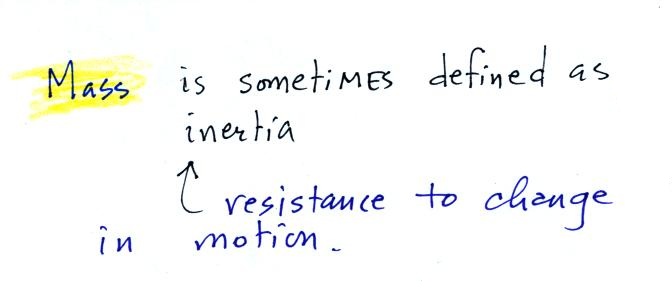 Mass is sometiMES defined as
inertia
resistance to change
in motion.